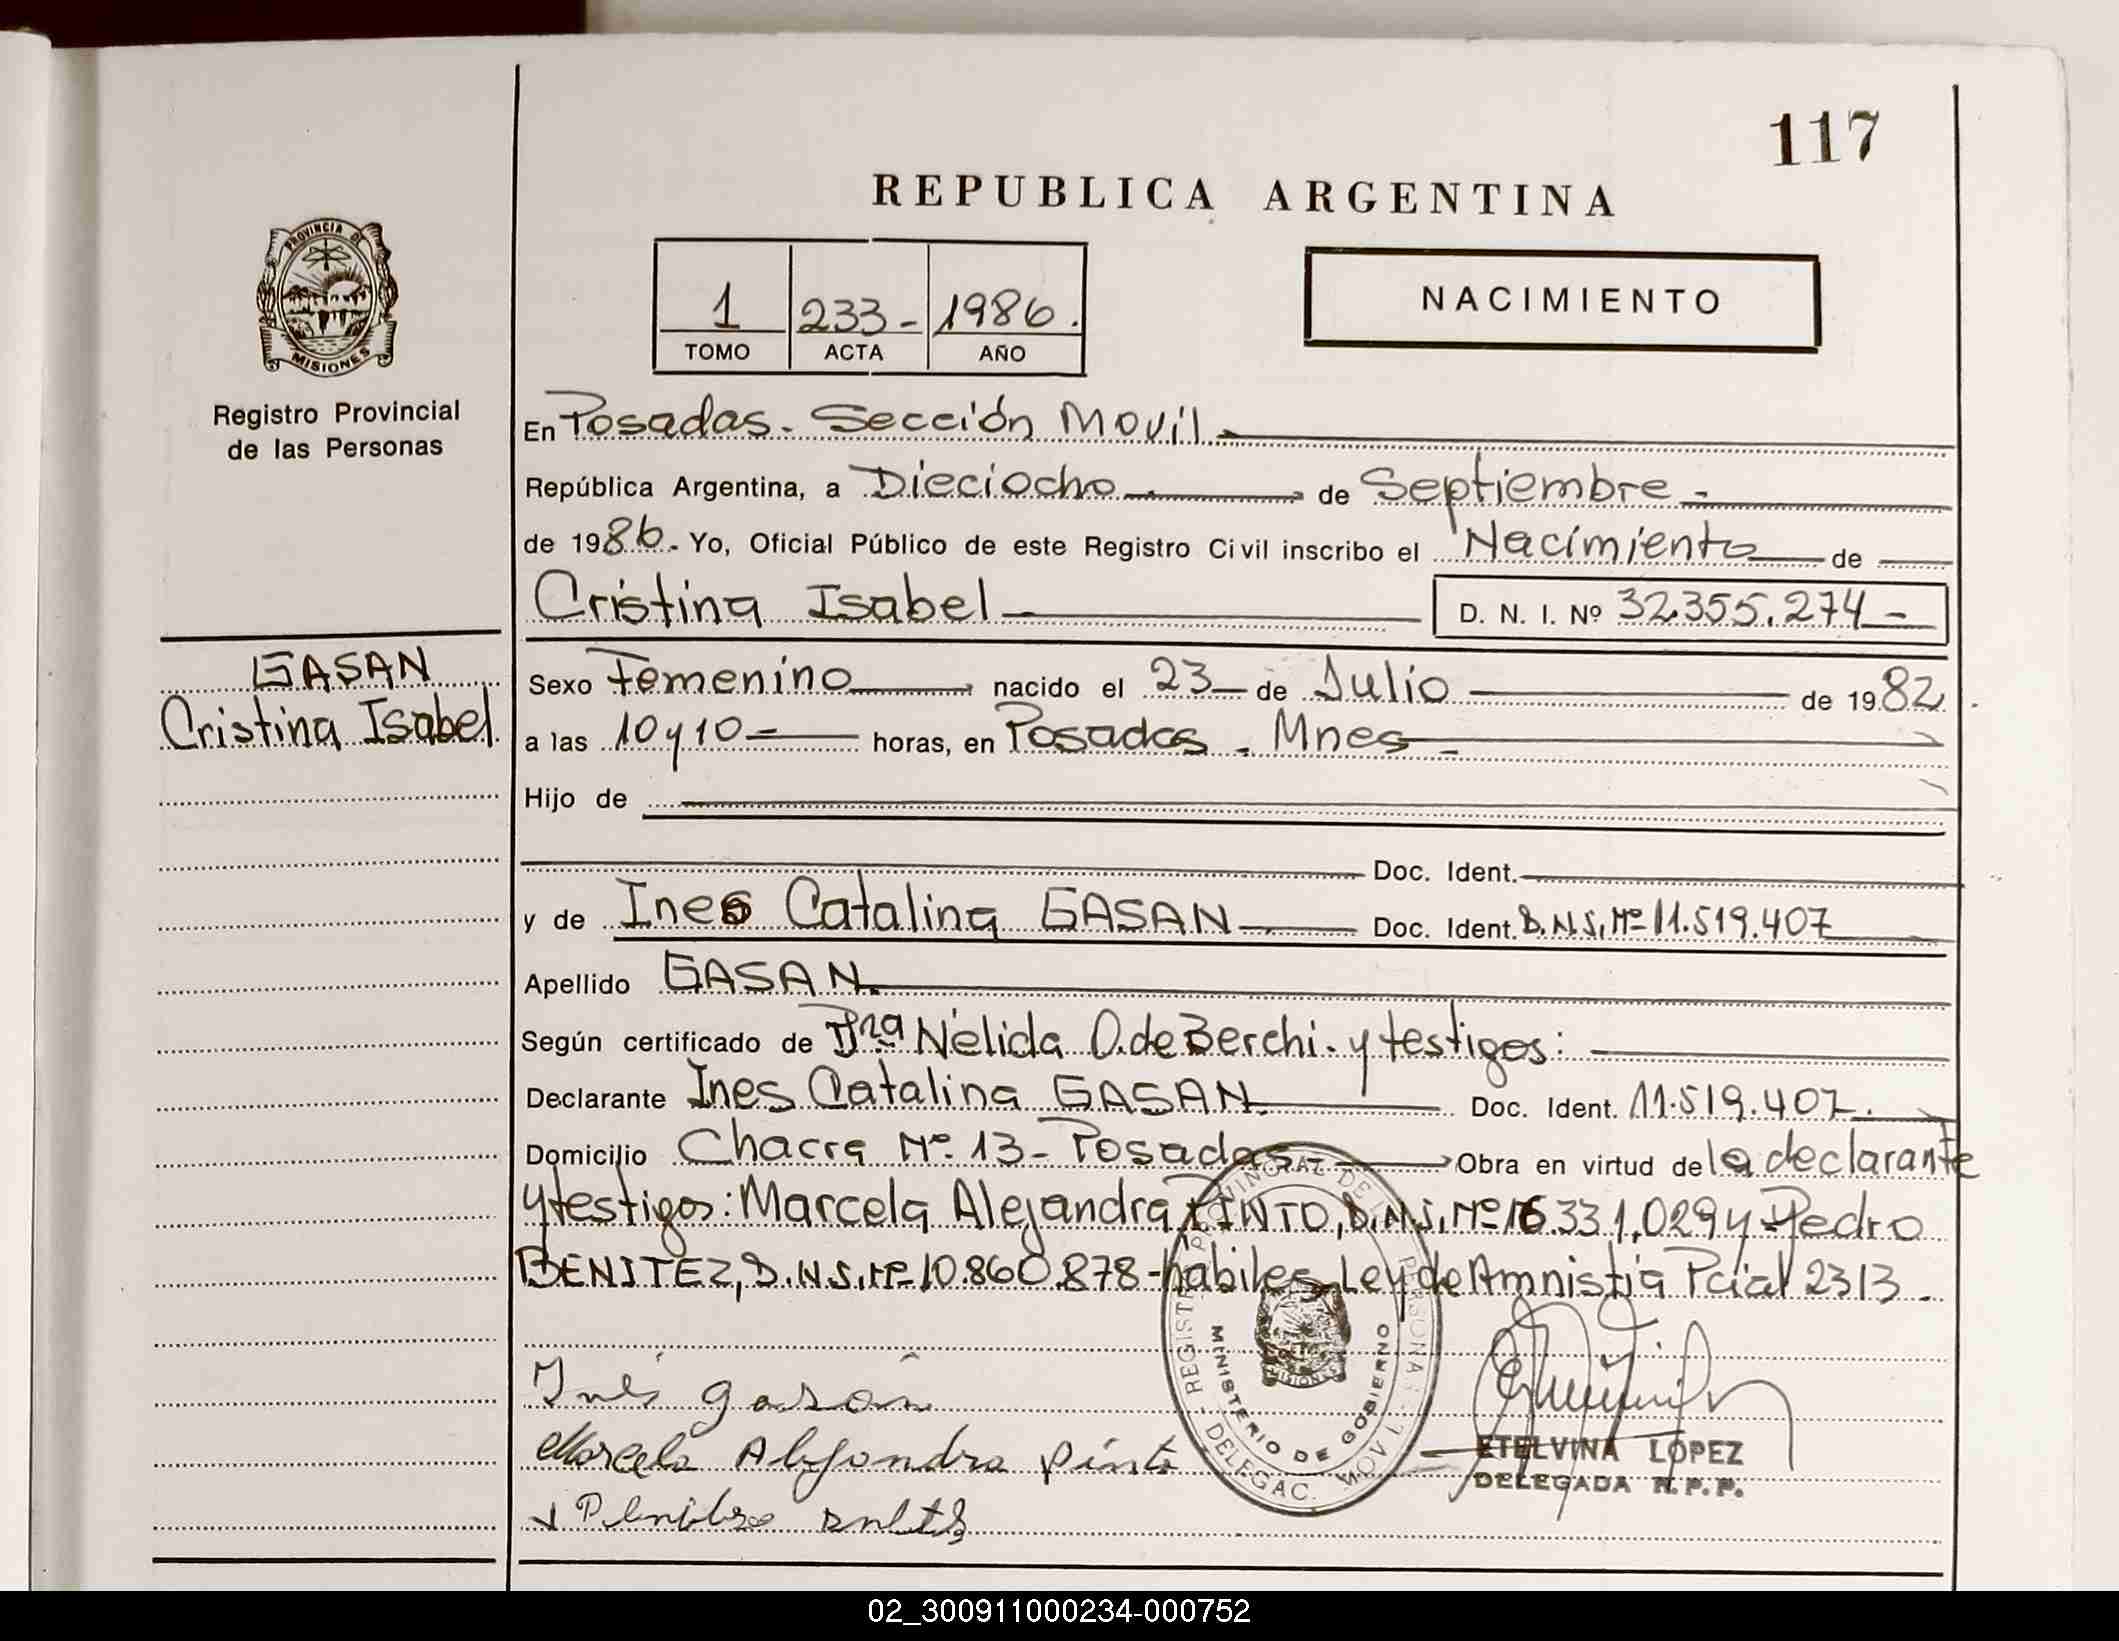 117
REPUBLICA ARGENTINA
PROVINCIA DE
MISIONES
Registro Provincial
de las Personas
1 233- 1986.
TOMO ACTA AÑO
NACIMIENTO
En Posadas. Sección Movil
República Argentina, a Dieciocho de Septiembre
de 1986. Yo, Oficial Público de este Registro Civil inscribo el Nacimiento de
Cristina Isabel D. N. I. Nº 32.355.274
GASAN
Cristina Isabel
Sexo Femenino nacido el 23 de Julio de 1982
a las 10 y 10 horas, en Posadas. Mnes
Hijo de
Doc. Ident.
y de Ines Catalina GASAN Doc. Ident. D.N.I. Nº 11.519.407
Apellido GASAN
Según certificado de Dra Nélida O. de Berchi. y testigos:
Declarante Ines Catalina GASAN Doc. Ident. 11.519.407.
Domicilio Chacra Nº 13 - Posadas Obra en virtud de la declarante
y testigos: Marcela Alejandra PINTO, D.N.I. Nº 16.331.029 y Pedro
BENITEZ, D.N.I. Nº 10.860.878 - habiles Ley de Amnistia Pcial 2313.
Inés gasan
Marcela Alejandra Pinto
REGISTRO PROVINCIAL DE LAS PERSONAS
MINISTERIO DE GOBIERNO
MISIONES
DELEGAC. MOVIL
ETELVINA LOPEZ
DELEGADA R.P.P.
02_300911000234-000752